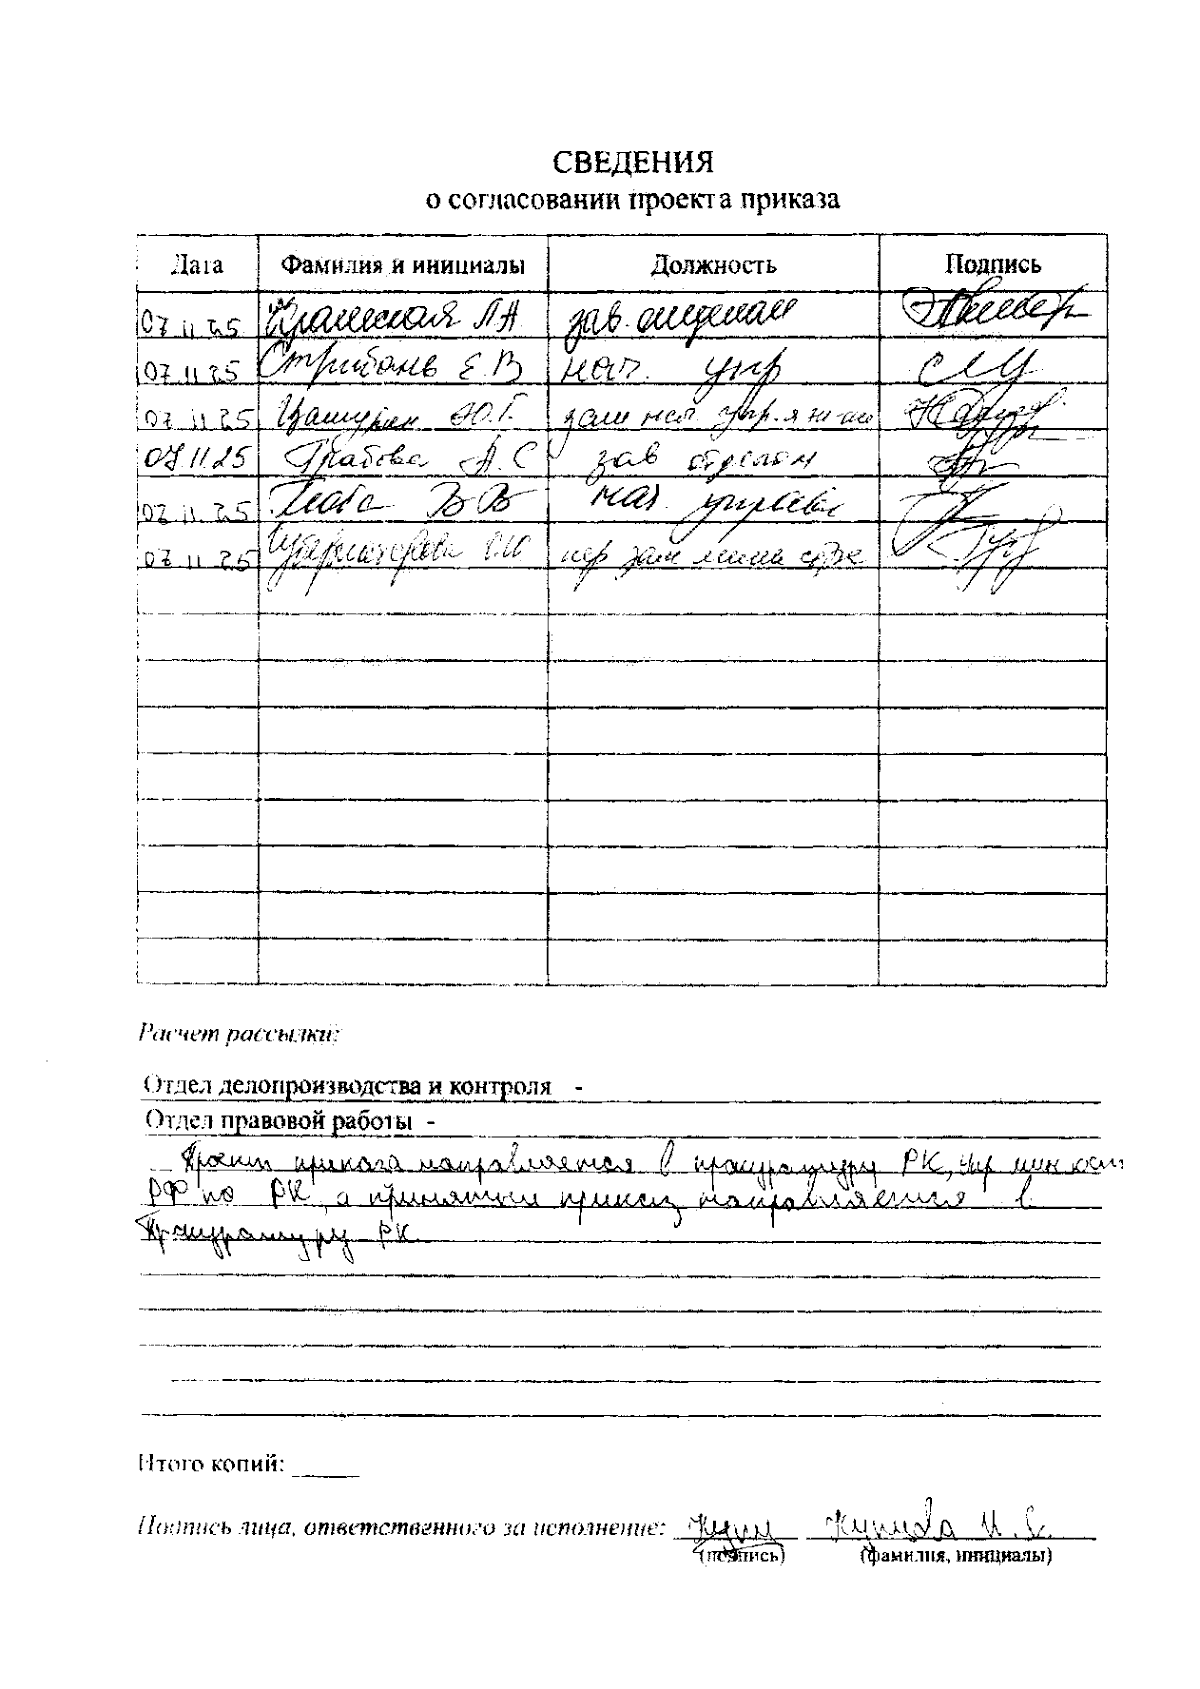 СВЕДЕНИЯ
о согласовании проекта приказа
Дата Фамилия и инициалы Должность Подпись
07.11.25 Л А зав. отделом
07.11.25 Стрибань Е.В нач. упр
07.11.25 Ю.Г. зам нач. упр.
07.11.25 А. С зав отделом
07.11.25 В В нач.
07.11.25 пер зам
Расчет рассылки:
Отдел делопроизводства и контроля -
Отдел правовой работы -
Проект приказа направляется в прокуратуру РК, Упр мин юст
РФ по РК, а принятый приказ направляется в
Прокуратуру РК.
Итого копий:
Подпись лица, ответственного за исполнение:
(подпись) (фамилия, инициалы)